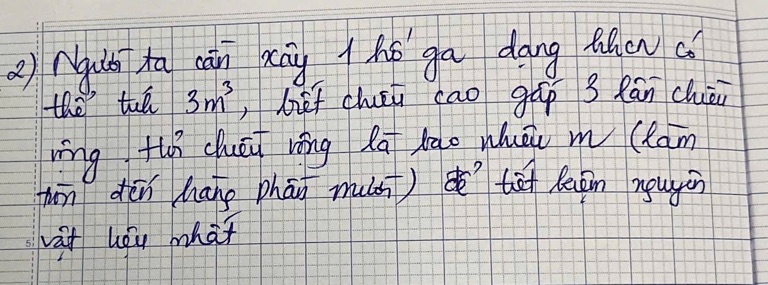 2) Người ta cần xây 1 hố ga dạng hhcn có
thể tích 3m³, biết chiều cao gấp 3 lần chiều
rộng. Hỏi chiều rộng là bao nhiêu m (làm
tròn đến hàng phần mười) để tiết kiệm nguyên
vật liệu nhất